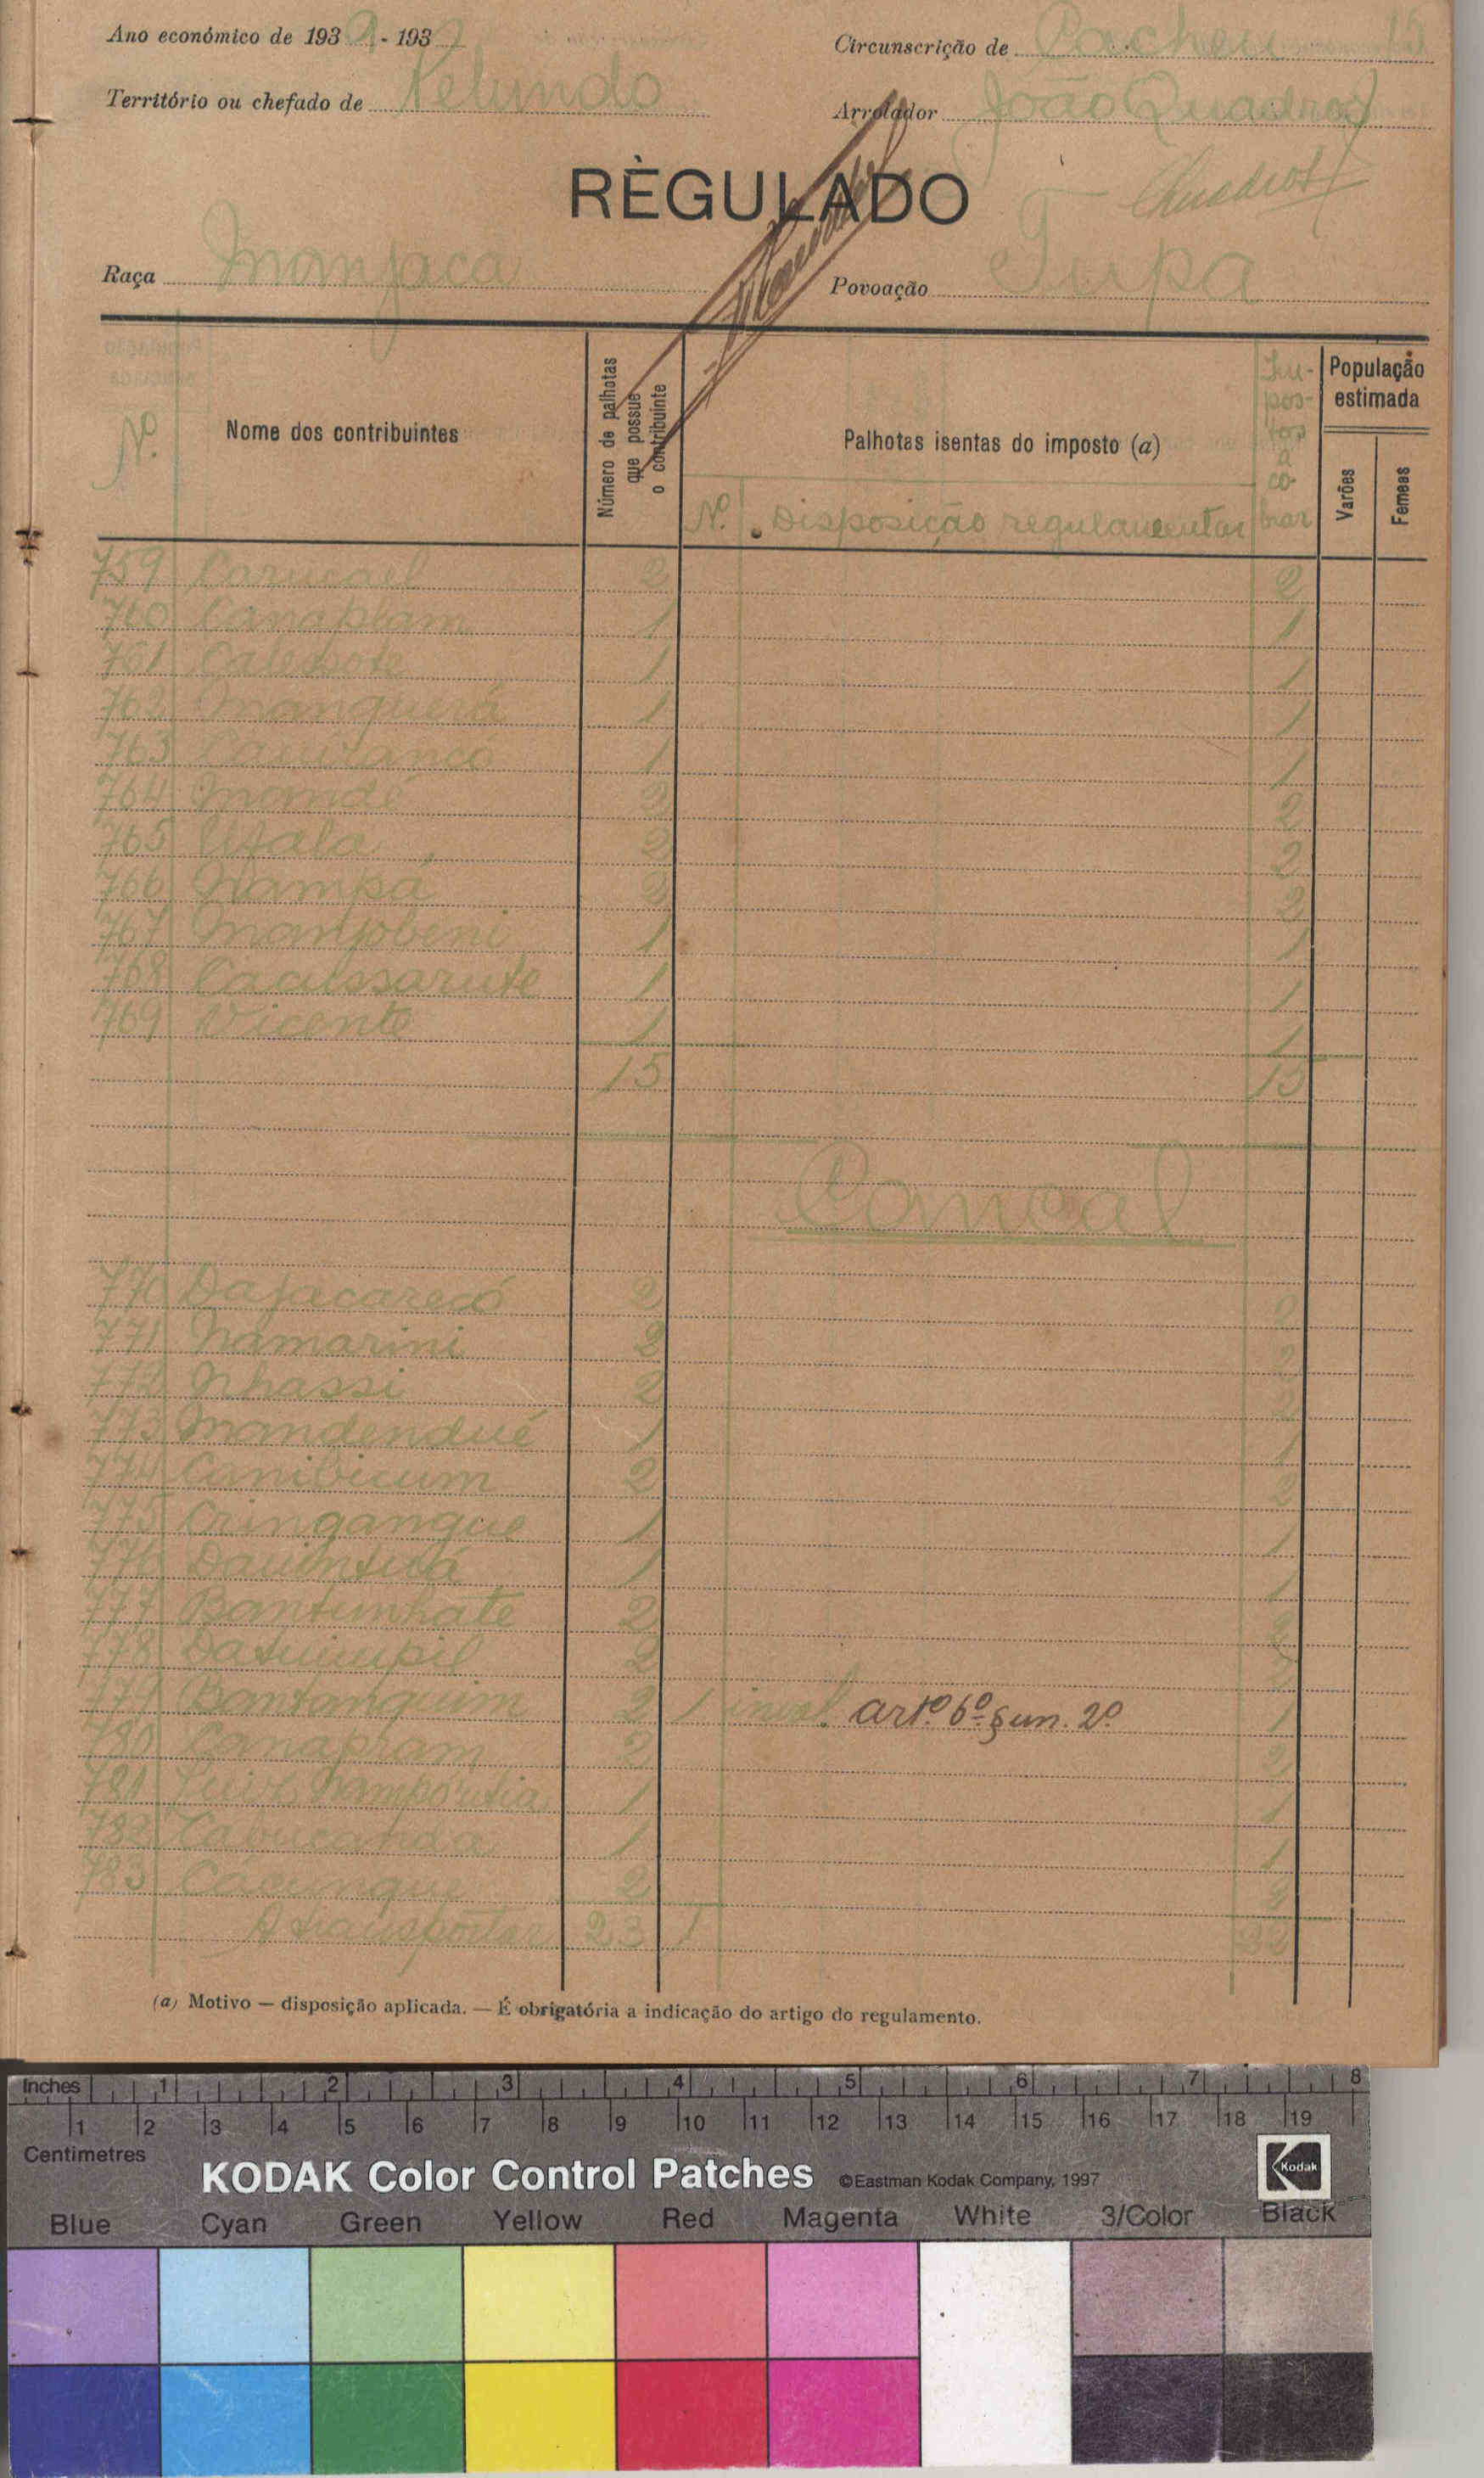 Ano económico de 193 - 193
Circunscrição de Cacheu 15
Território ou chefado de Pelundo
Arrolador João Quadros
RÈGULADO
Quadros
Raça Manjaca
Povoação Tupa
Nº
Nome dos contribuintes
Número de palhotas que possue o contribuinte
Palhotas isentas do imposto (a)
Nº. Disposição regulamentar
Impostos a cobrar
População estimada
Varões
Femeas
759 2 2
760 Canaplam 1 1
761 1 1
762 Manguerá 1 1
763 1 1
764 Mandé 2 2
765 Ufala 2 2
766 Nampá 2 2
767 Manjobeni 1 1
768 Cacussarute 1 1
769 Vicente 1 1
15 15
Comoal
770 Dajacarecó 2 2
771 Namarini 2 2
772 Nhassi 2 2
773 Mandendué 1 1
774 Canibicum 2 2
775 Cringangue 1 1
776 1 1
777 Bantunhate 2 2
778 2 2
779 Bantanquim 2 1 inval. artº. 6º. § un. 2º. 1
780 Canaplam 2 2
781 1 1
782 Cabucanda 1 1
783 Cacungue 2 2
A transportar 23 1 22
(a) Motivo — disposição aplicada. — É obrigatória a indicação do artigo do regulamento.
Inches 1 2 3 4 5 6 7 8
1 2 3 4 5 6 7 8 9 10 11 12 13 14 15 16 17 18 19
Centimetres
KODAK Color Control Patches ©Eastman Kodak Company, 1997 Kodak
Blue Cyan Green Yellow Red Magenta White 3/Color Black